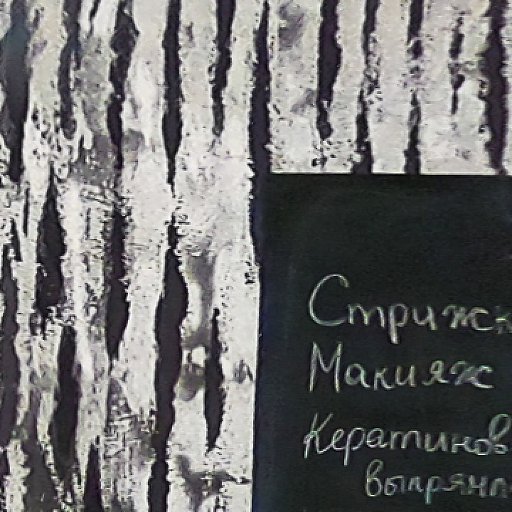 Стрижк
Макияж
Кератинов
выпрямл